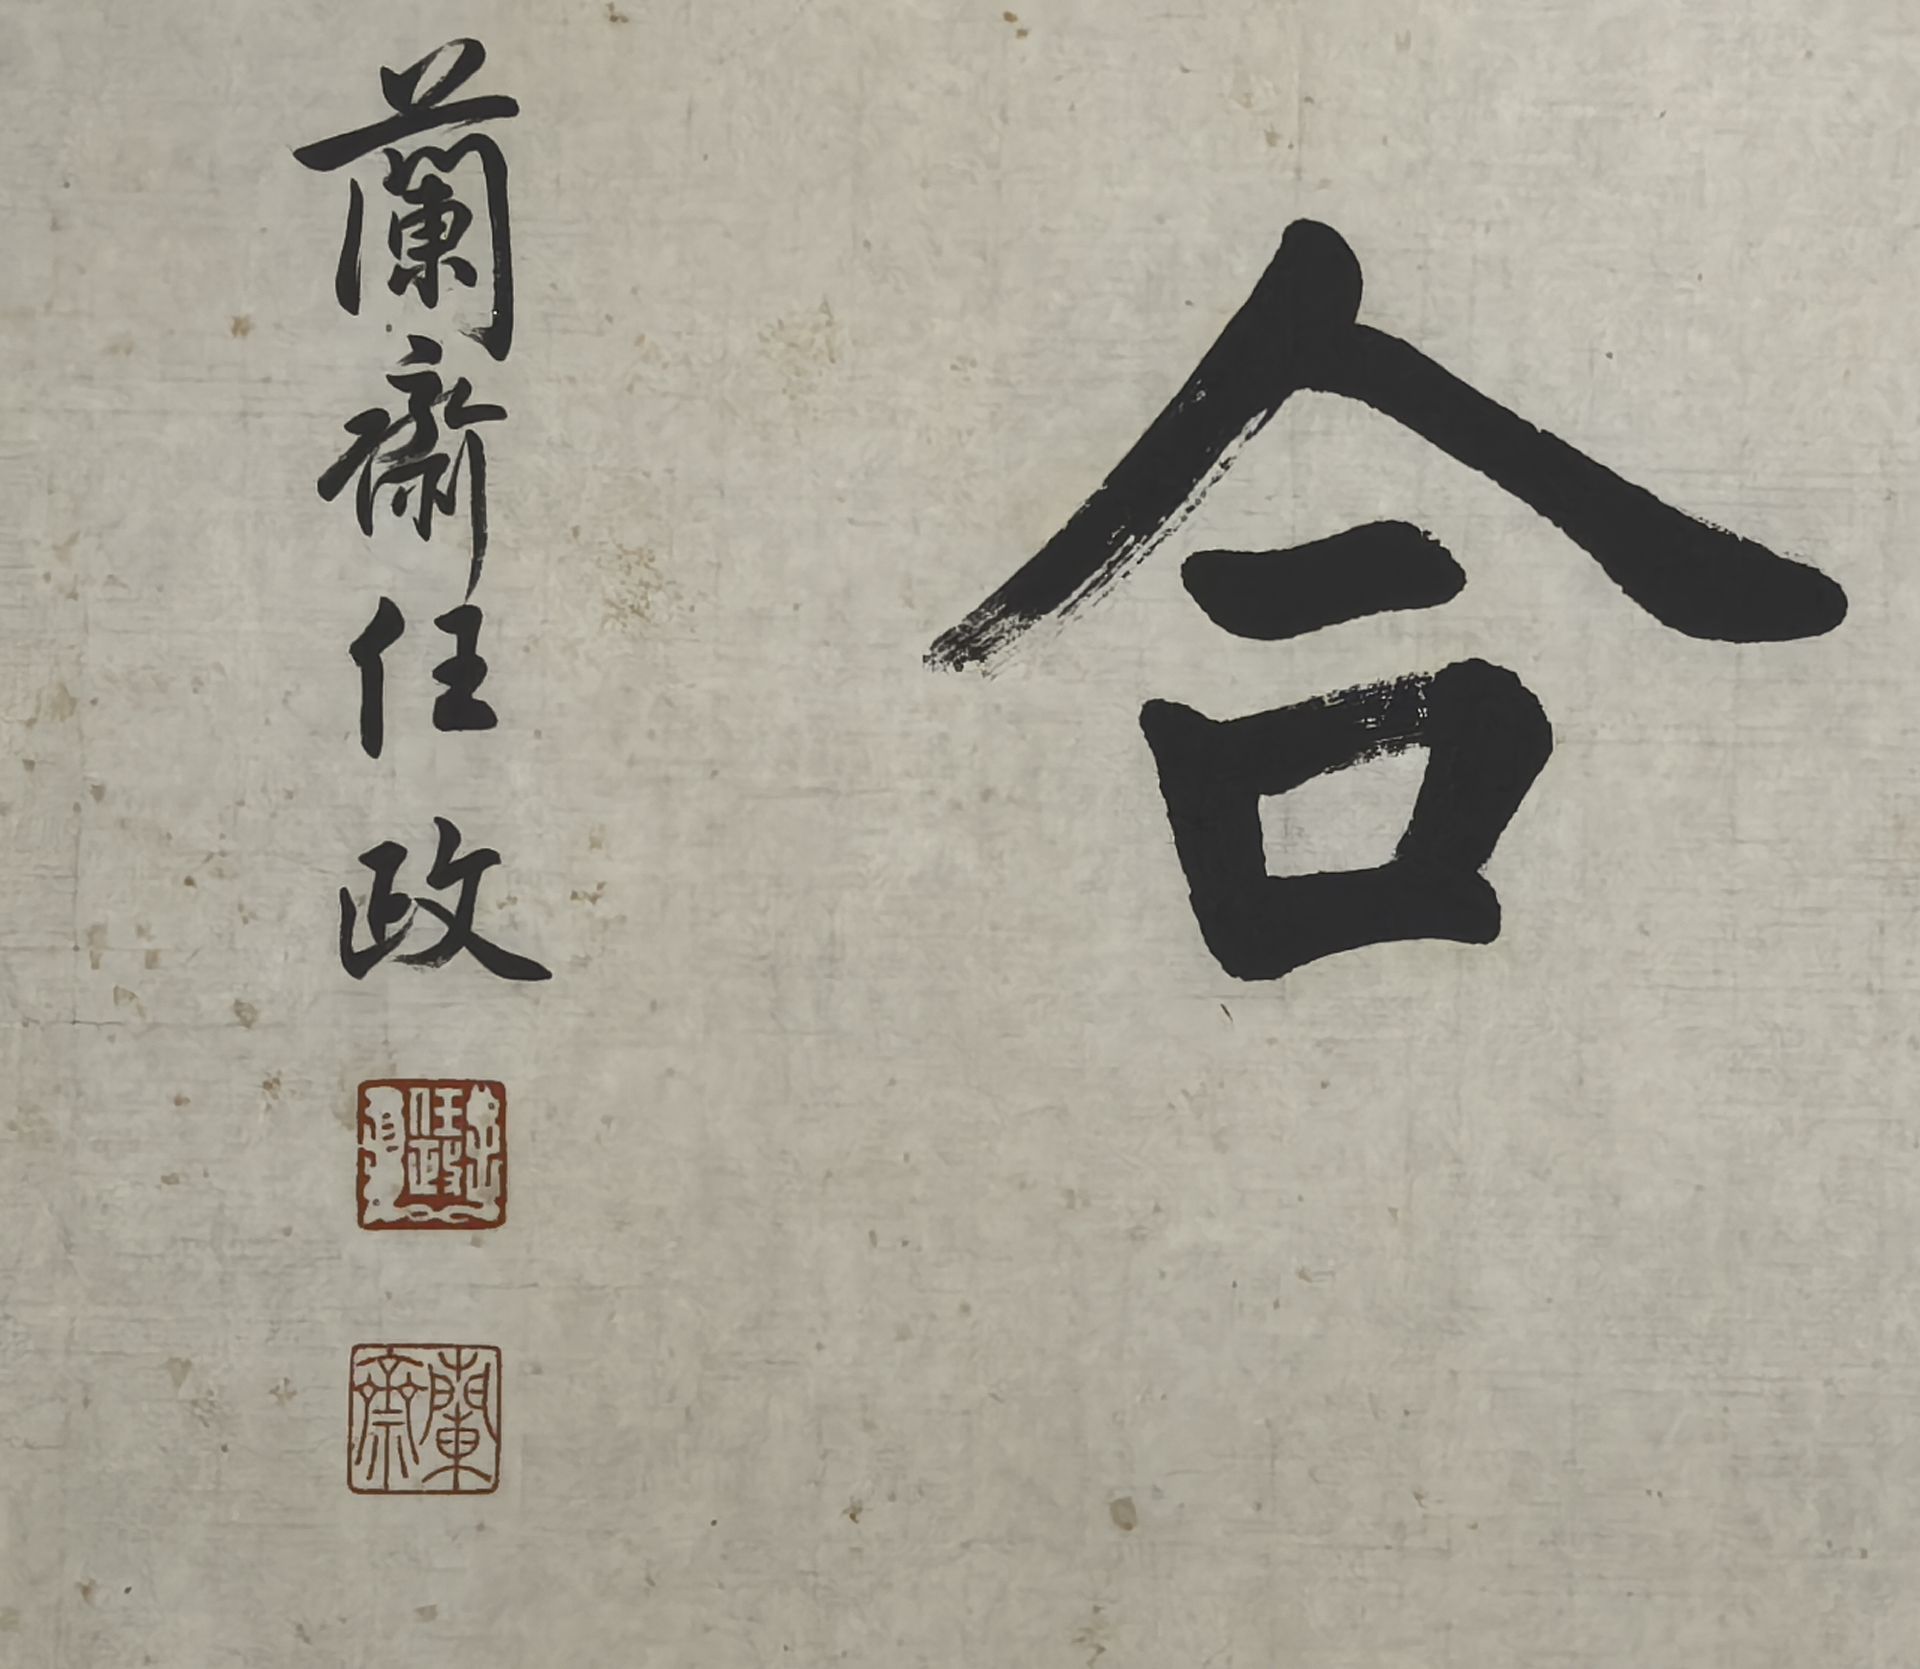 合
蘭齋任政
任政
蘭齋